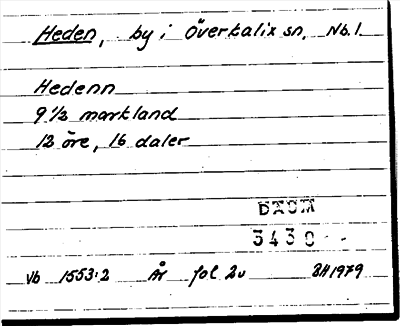 Heden, by i Överkalix sn, Nb.l.
Hedenn
9 1/3 markland
12 öre, 16 daler
DAUM
3430
Vb 1553:2 År fol 2v BH1979